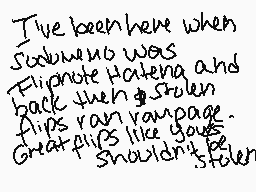 I've been here when
Sudomemo was
Flipnote Hatena and
back then stolen
flips ran rampage.
Great flips like yours
shouldn't be
stolen